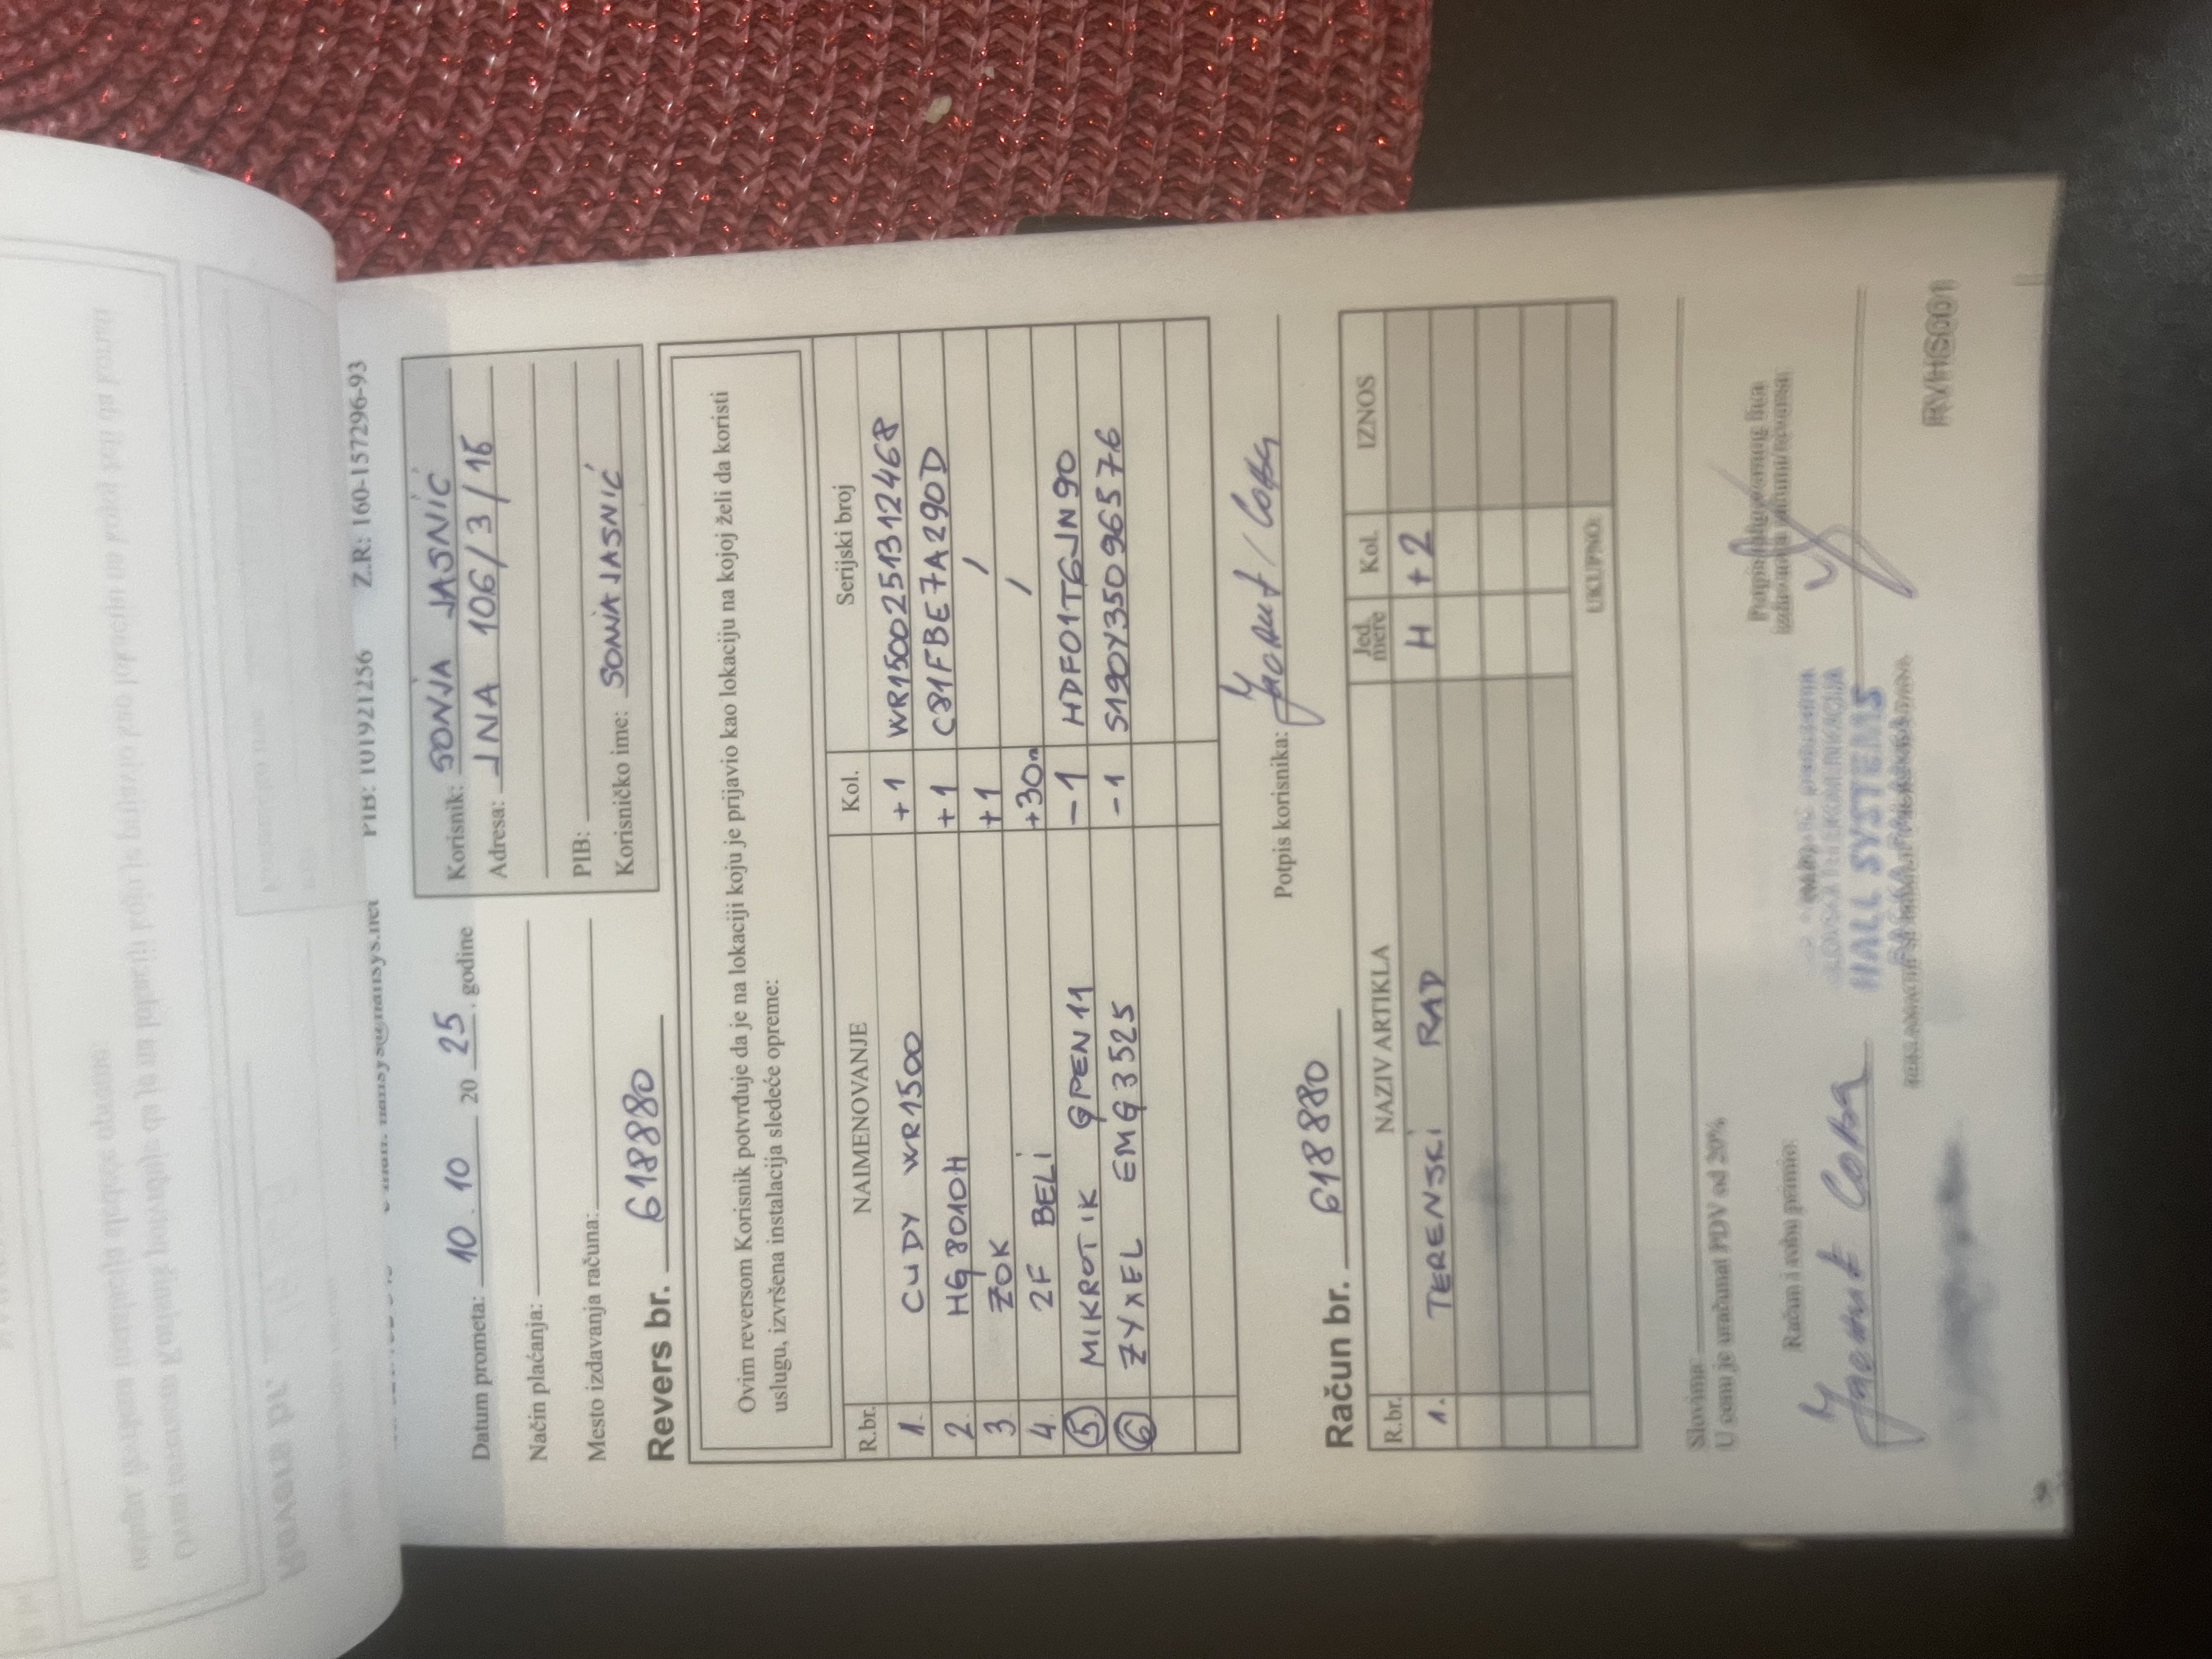 PIB: 101921256 Z.R: 160-157296-93
Datum prometa: 10. 10 20 25. godine
Način plaćanja:
Mesto izdavanja računa:
Korisnik: SONJA JASNIĆ
Adresa: JNA 106/3/16
PIB:
Korisničko ime: SONJA JASNIĆ
Revers br. 618880
Ovim reversom Korisnik potvrđuje da je na lokaciji koju je prijavio kao lokaciju na kojoj želi da koristi
uslugu, izvršena instalacija sledeće opreme:
R.br. NAIMENOVANJE Kol. Serijski broj
1. CUDY WR1500 +1 WR1500251312468
2. HG8010H +1 C81FBE7A290D
3. ŽOK +1 /
4. 2F BELI +30m /
5. MIKROTIK GPEN11 -1 HDF01TGJN90
6. ZYXEL EMG3525 -1 S190Y35096576
Potpis korisnika:
Račun br. 618880
R.br. NAZIV ARTIKLA Jed. mere Kol. IZNOS
1. TERENSKI RAD H +2
UKUPNO:
Slovima:
U cenu je uračunat PDV od 20%
Račun i robu primio:
HALL SYSTEMS
RVHS001